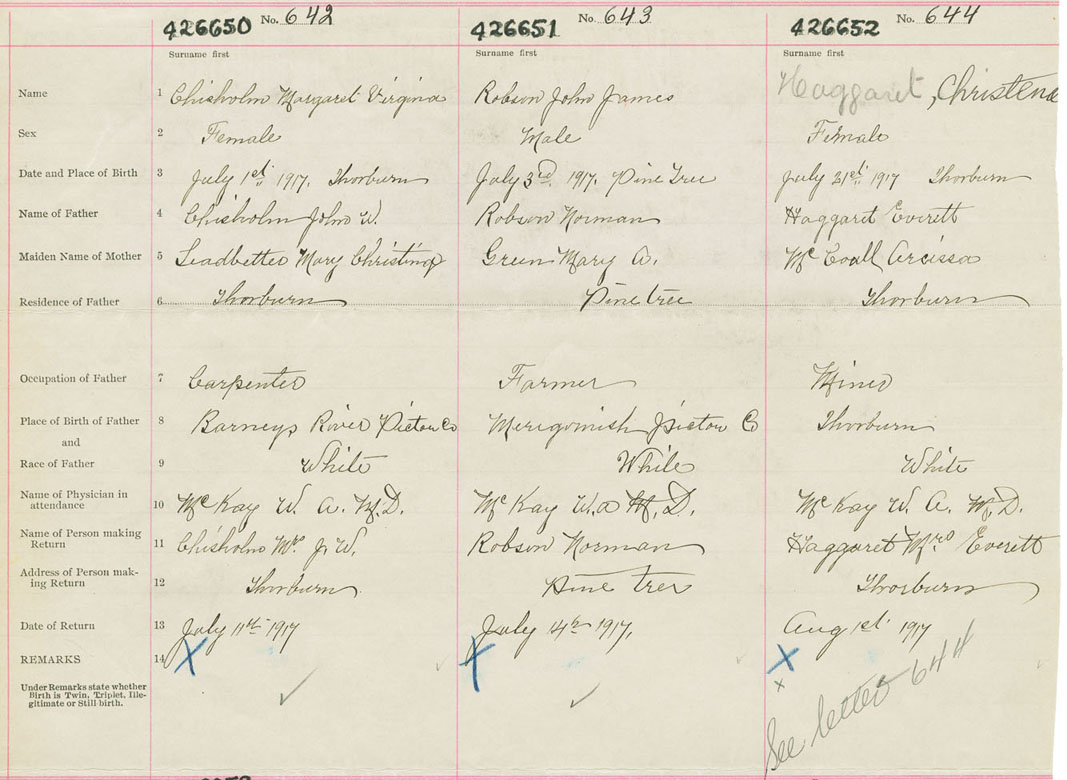 426650 No. 642 426651 No. 643 426652 No. 644
Surname first Surname first Surname first
Name 1 Chisholm Margaret Virginia Robson John James Haggaret, Christena
Sex 2 Female Male Female
Date and Place of Birth 3 July 1st 1917. Thorburn July 3rd 1917. Pine Tree July 31st 1917 Thorburn
Name of Father 4 Chisholm John W. Robson Norman Haggaret Everett
Maiden Name of Mother 5 Leadbetter Mary Christina Green Mary A. Mc
Residence of Father 6 Thorburn Pine tree Thorburn
Occupation of Father 7 Carpenter Farmer Miner
Place of Birth of Father 8 Barneys River Pictou Co Merigomish Pictou Co Thorburn
and
Race of Father 9 White White White
Name of Physician in
attendance 10 McKay W. A. M.D. McKay W.A M.D. McKay W. A. M.D.
Name of Person making
Return 11 Chisholm Mr. J. W. Robson Norman Haggaret Mrs Everett
Address of Person mak-
ing Return 12 Thorburn Pine tree Thorburn
Date of Return 13 July 11th 1917 July 14th 1917. Aug 1st 1917
REMARKS 14 X X X
Under Remarks state whether
Birth is Twin, Triplet, Ille-
gitimate or Still-birth.
x
See letter 644